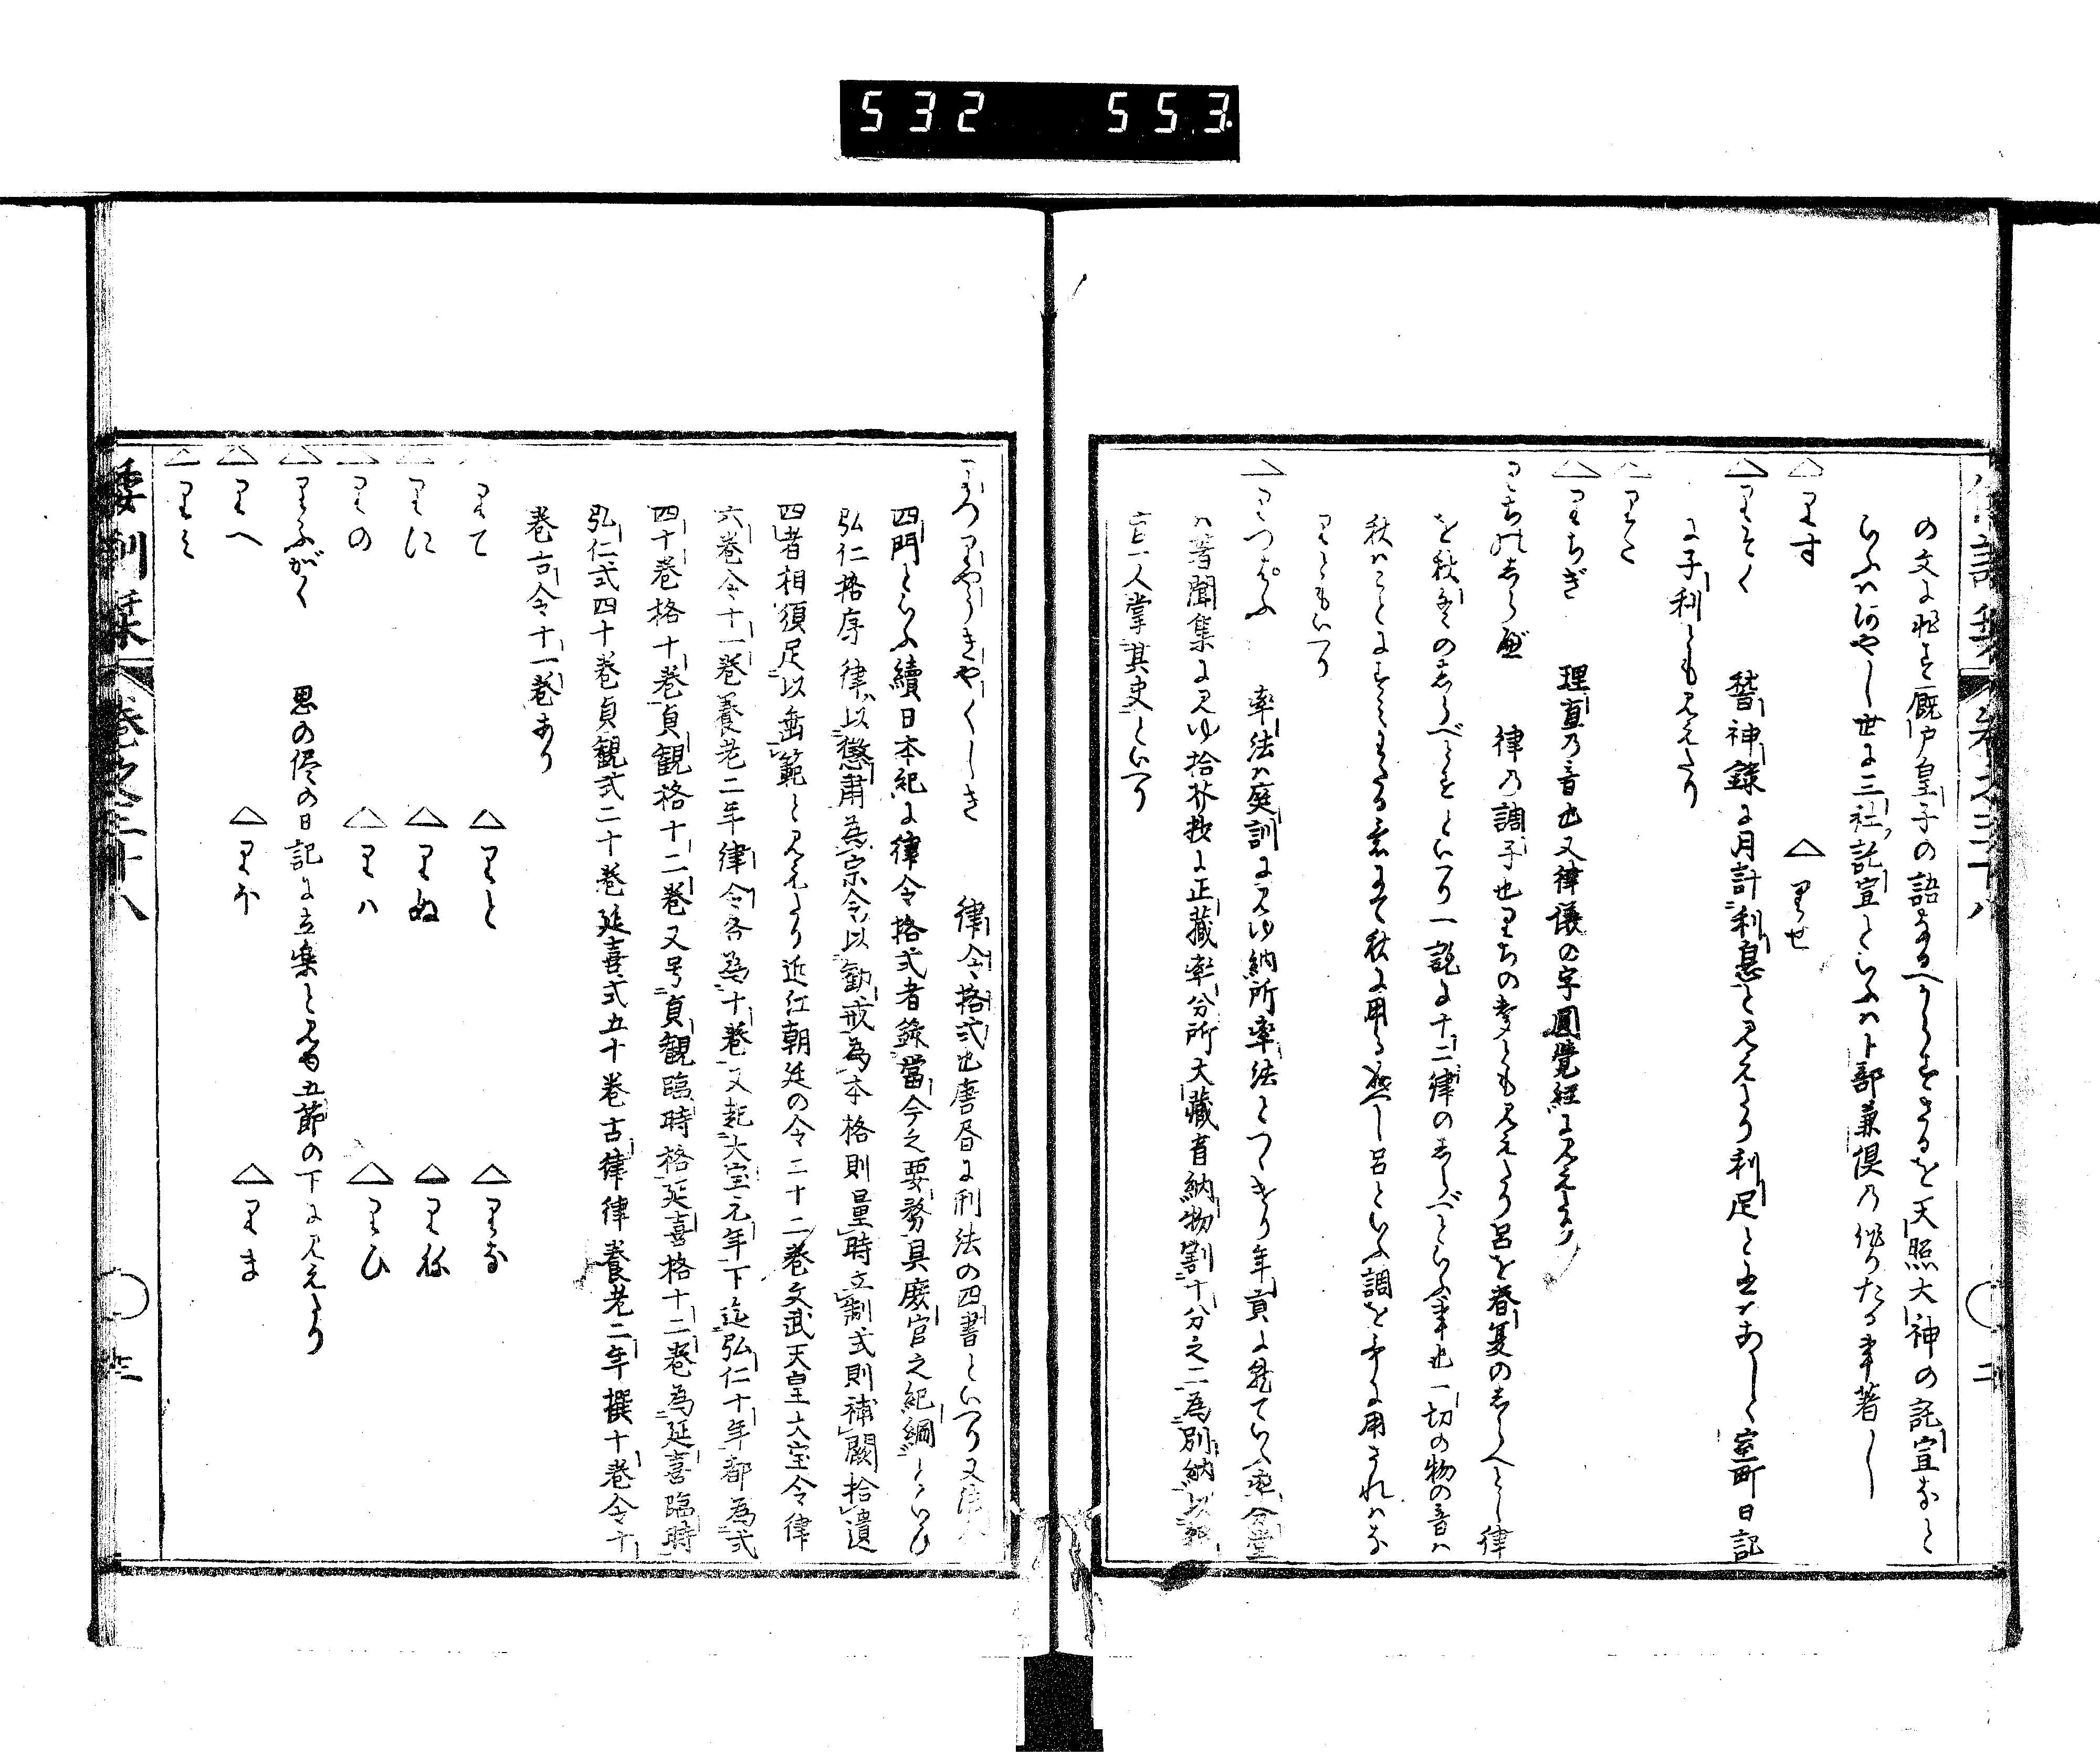 532 553
の文に非ず厩戸皇子の語なるべからざるを天照大神の託宣なと
いふハあやし世に三社託宣といふハ卜部兼倶乃作りたる事著し
△りす △りせ
△りそく 稽神録に月計利息と見えたり利足と書ハあしく室町日記
に子利とも見えたり
△りた
△りちぎ 理直乃音也又律儀の字圓覺經に見えたり
りちのしらべ 律乃調子也りちのことも見えたり呂を春夏のしらへとし律
を秋冬のしらべとをといへり一説に十二律のしらべといふ事也一切の物の音ハ
秋ハことにすミまさる意にて秋に用る成へし呂といふ調を専に用されハな
りともいへり
△りつはふ 率法ハ庭訓に見ゆ納所率法とつゝけり年貢に就ていふ率分堂
ハ著聞集に見ゆ拾芥抄に正藏率分所大藏省納物割十分之二為別納以
官一人掌其史といへり
りつりやうきやくしき 律令格式也唐書に刑法の四書といへり又
四門といふ續日本紀に律令格式者錄當今之要務具庶官之紀綱といひ
弘仁格序律以懲肅為宗令以勸戒為本格則量時立制式則補闕拾遺
四者相須足以垂範と見えたり近江朝廷の令二十二巻文武天皇大宝令律
六巻令十一巻養老二年律令各為十巻又起大宝元年下迄弘仁十年都為式
四十巻格十巻貞観格十二巻又号貞観臨時格延喜格十二巻為延喜臨時
弘仁式四十巻貞観式二十巻延喜式五十巻古律律養老二年撰十巻令十
巻古令十一巻あり
△りて △りと △りな
△りに △りぬ △りね
△りの △りハ △りひ
△りふがく 思の侭の日記に立楽と見ゆ五節の下に見えたり
△りへ △りほ △りま
△りミ
倭訓栞 巻之三十八 三